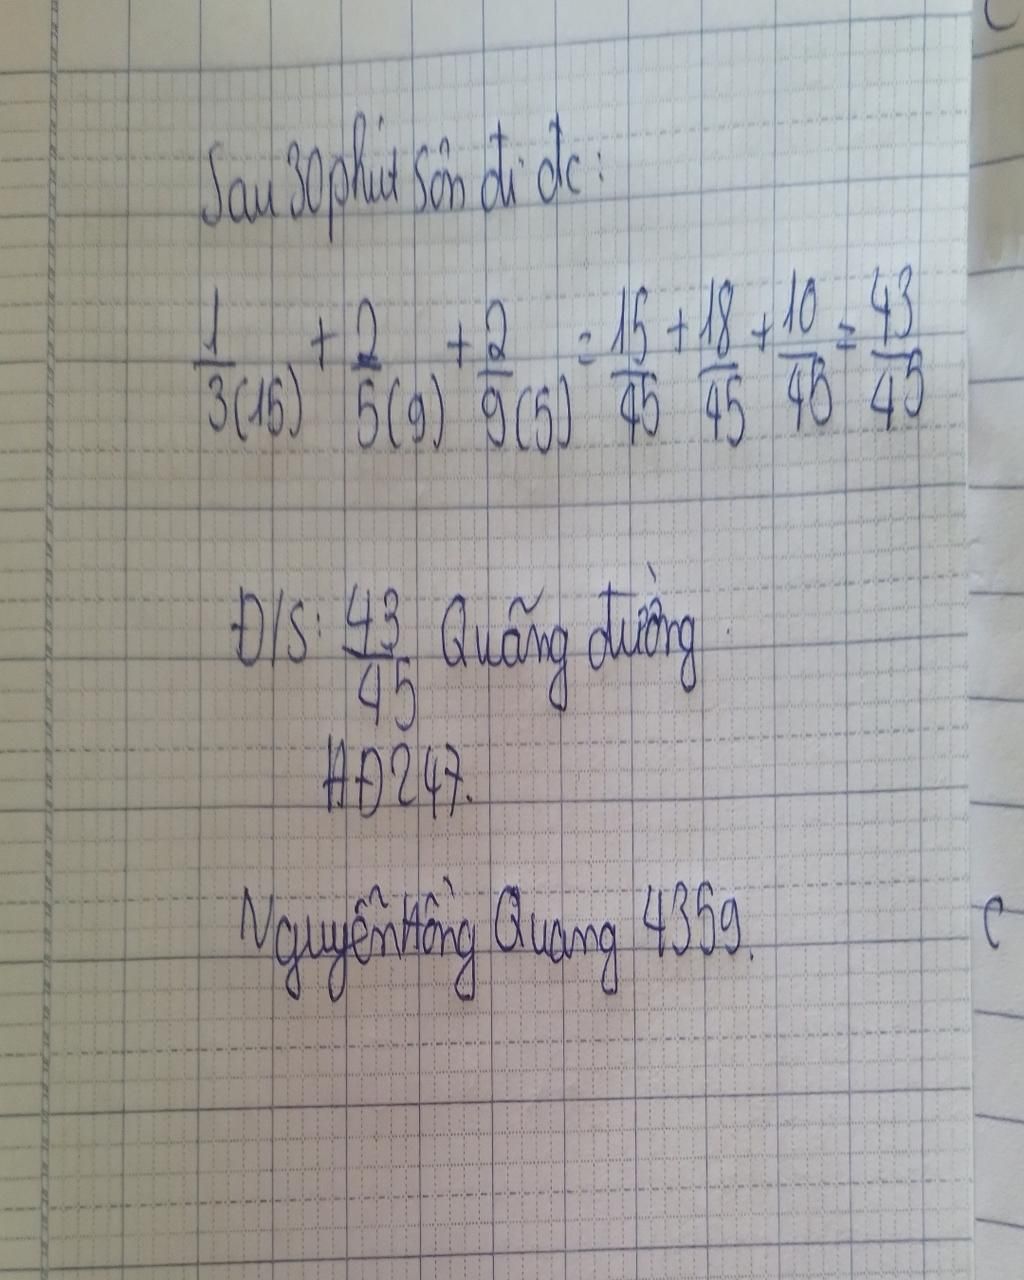 Sau 30 phút Sôn đi đc:
1/3(15) + 2/5(9) + 2/9(5) = 15/45 + 18/45 + 10/45 = 43/45
Đ/S: 43/45 Quãng đường
HĐ247.
Nguyễn Hồng Quang 4359.